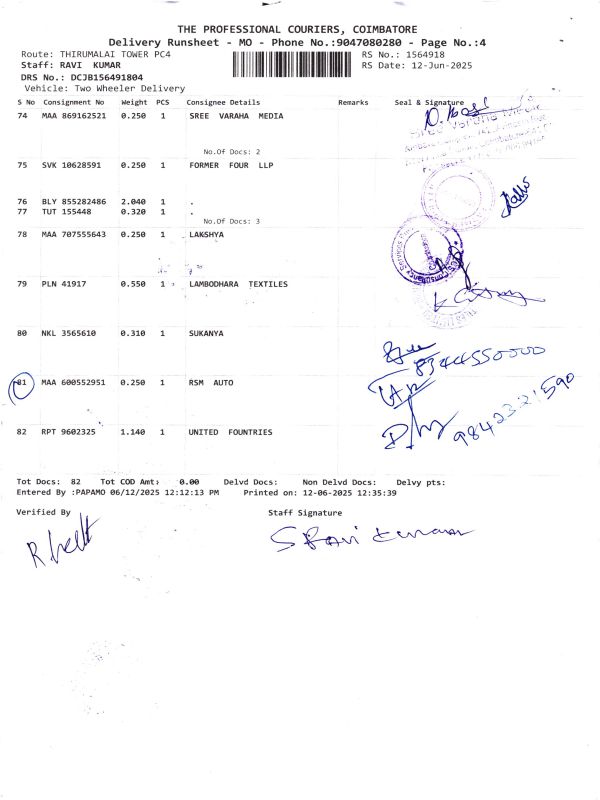 THE PROFESSIONAL COURIERS, COIMBATORE
Delivery Runsheet - MO - Phone No.:9047080280 - Page No.:4
Route: THIRUMALAI TOWER PC4 RS No.: 1564918
Staff: RAVI KUMAR RS Date: 12-Jun-2025
DRS No.: DCJB156491804
Vehicle: Two Wheeler Delivery
S No Consignment No Weight PCS Consignee Details Remarks Seal & Signature
74 MAA 869162521 0.250 1 SREE VARAHA MEDIA
No.Of Docs: 2
75 SVK 10628591 0.250 1 FORMER FOUR LLP
76 BLY 855282486 2.040 1 .
77 TUT 155448 0.320 1 .
No.Of Docs: 3
78 MAA 707555643 0.250 1 LAKSHYA
79 PLN 41917 0.550 1 LAMBODHARA TEXTILES
80 NKL 3565610 0.310 1 SUKANYA
8344550000
81 MAA 600552951 0.250 1 RSM AUTO
82 RPT 9602325 1.140 1 UNITED FOUNTRIES
9842321590
Tot Docs: 82 Tot COD Amt: 0.00 Delvd Docs: Non Delvd Docs: Delvy pts:
Entered By :PAPAMO 06/12/2025 12:12:13 PM Printed on: 12-06-2025 12:35:39
Verified By Staff Signature
S Ravi Kumar